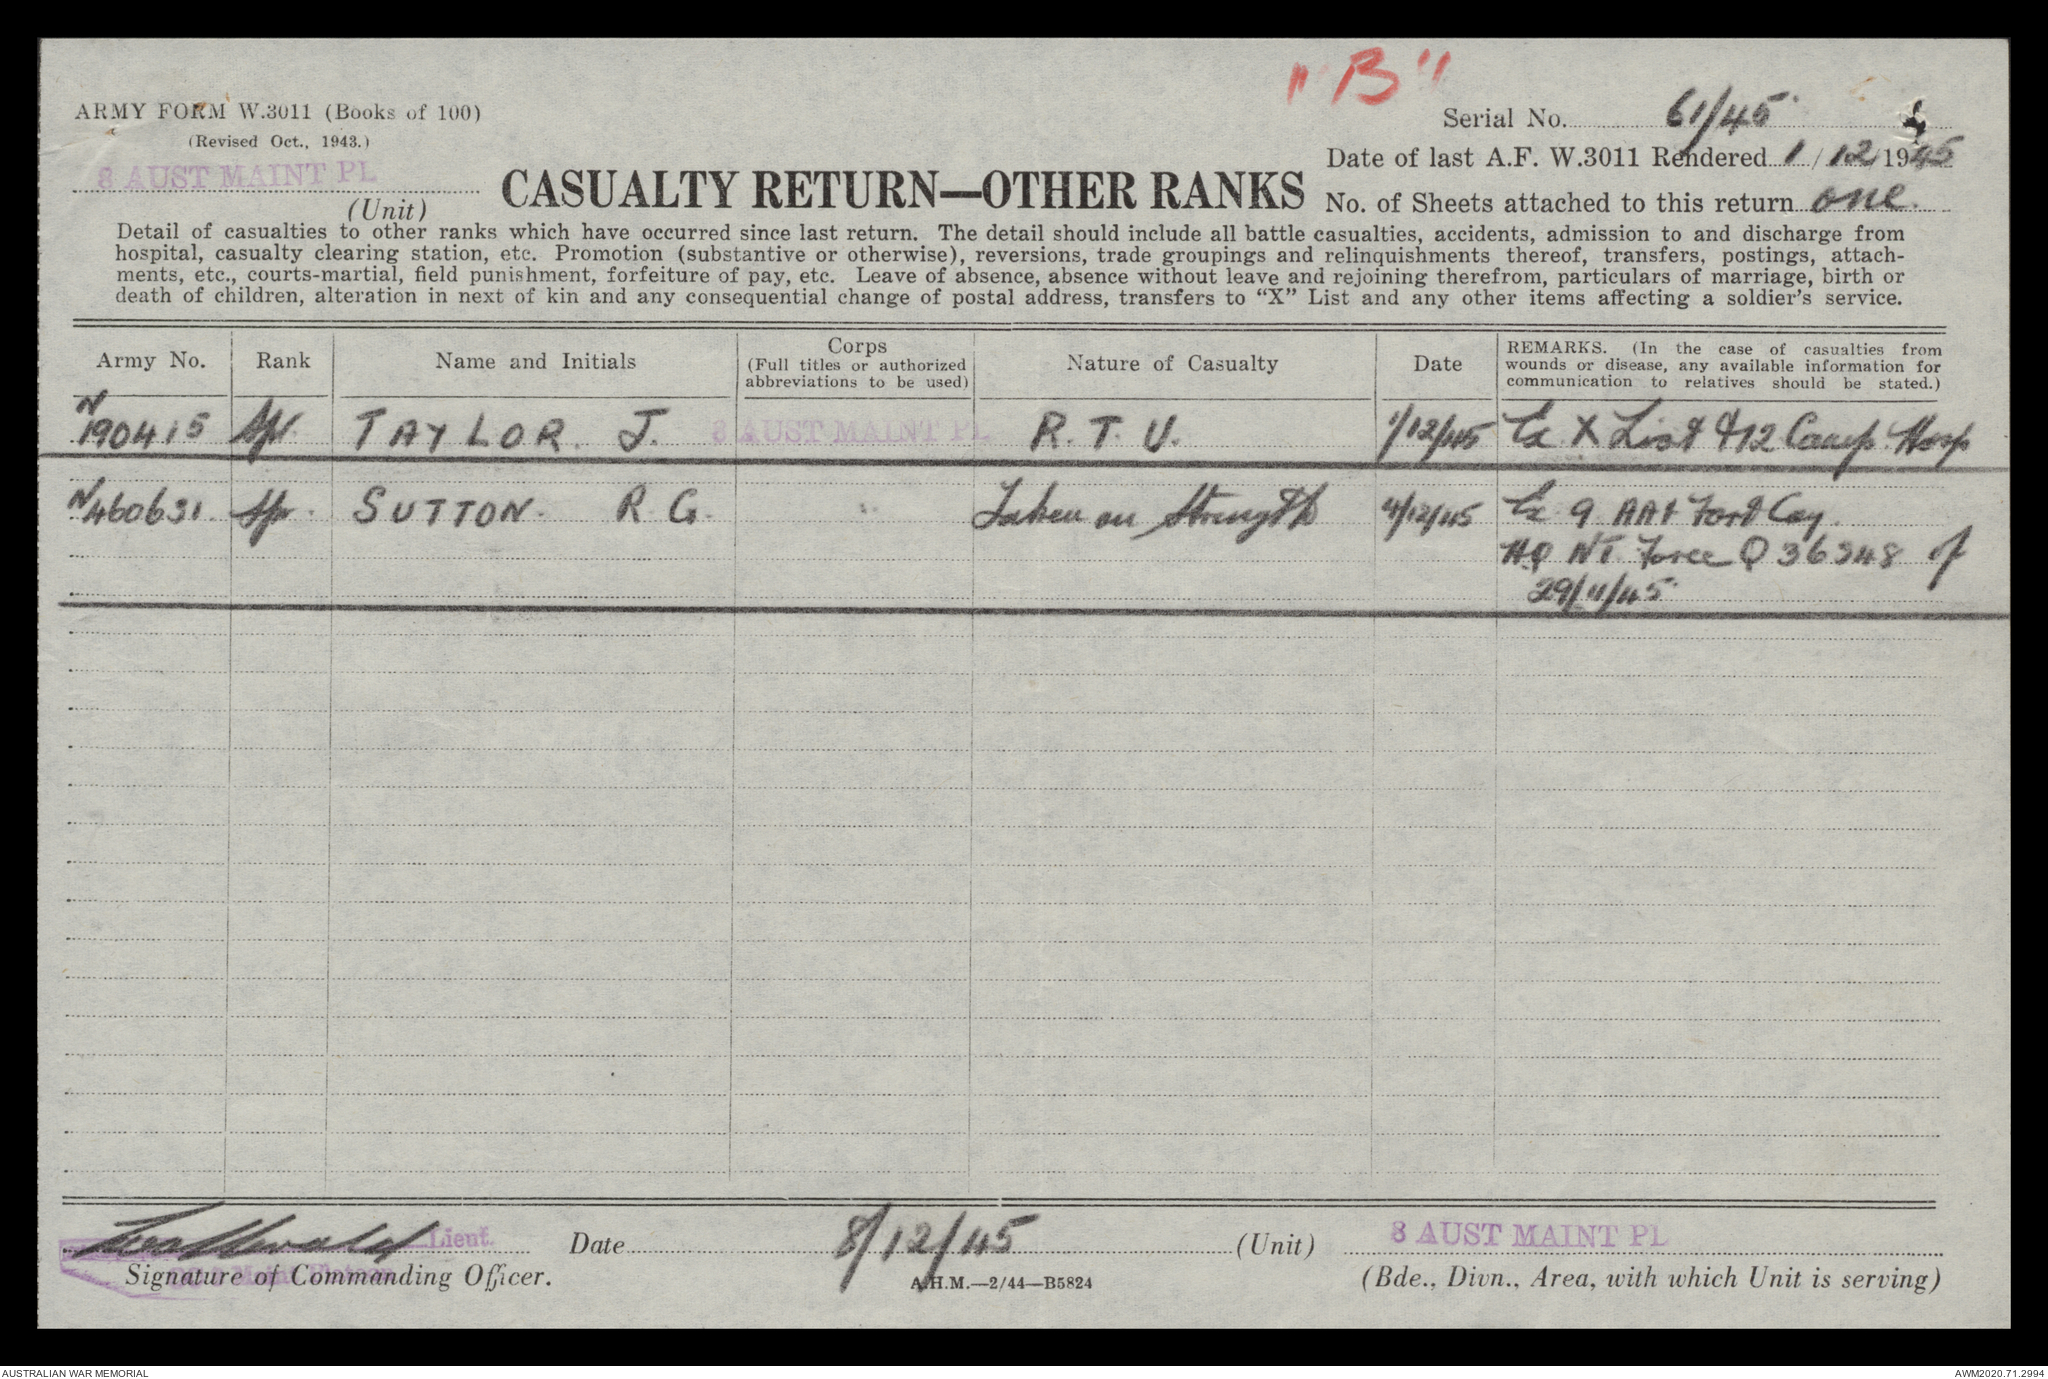 " B "
ARMY FORM W.3011 (Books of 100)
(Revised Oct., 1943.)
Serial No. 61/45
8 AUST MAINT PL
(Unit)
CASUALTY RETURN—OTHER RANKS
Date of last A.F. W.3011 Rendered 1/12/1945
No. of Sheets attached to this return one.
Detail of casualties to other ranks which have occurred since last return. The detail should include all battle casualties, accidents, admission to and discharge from
hospital, casualty clearing station, etc. Promotion (substantive or otherwise), reversions, trade groupings and relinquishments thereof, transfers, postings, attach-
ments, etc., courts-martial, field punishment, forfeiture of pay, etc. Leave of absence, absence without leave and rejoining therefrom, particulars of marriage, birth or
death of children, alteration in next of kin and any consequential change of postal address, transfers to "X" List and any other items affecting a soldier's service.
Army No. Rank Name and Initials Corps (Full titles or authorized abbreviations to be used) Nature of Casualty Date REMARKS. (In the case of casualties from wounds or disease, any available information for communication to relatives should be stated.)
N190415 Spr. TAYLOR. J. 8 AUST MAINT PL R.T.U. 1/12/45 Ex X List 412 Camp Hosp
N460631 Spr. SUTTON. R G. Taken on Strength 4/12/45 Ex 9 AA & Fort Coy.
HQ NT Force Q 36348 of
29/11/45.
Lieut.
Date 8/12/45
(Unit) 8 AUST MAINT PL
Signature of Commanding Officer.
A.H.M.—2/44—B5824
(Bde., Divn., Area, with which Unit is serving)
AUSTRALIAN WAR MEMORIAL
AWM2020.71.2994